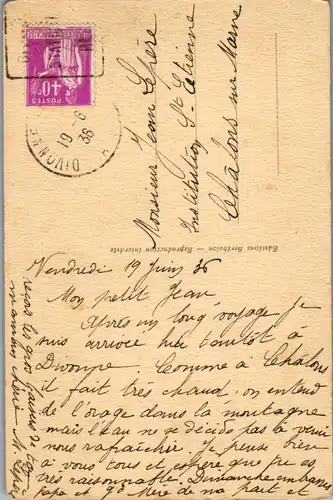 POSTES
40c
DIVONNE
19-6
36
Monsieur Jean Lepère
Institution St Etienne
Châlons sur Marne
Editions Bertholon — Reproduction interdite
Vendredi 19 Juin 36
Mon petit Jean,
Après un long voyage je
suis arrivée hier tantôt à
Divonne. Comme à Châlons
il fait très chaud, on entend
de l'orage dans la montagne
mais l'eau ne se décide pas à venir
nous rafraîchir. Je pense bien
à vous tous et espère que tu es
très raisonnable. Dimanche embrasse
papa et gd Mère de ma part et
reçois le gros baiser de ta
maman chérie